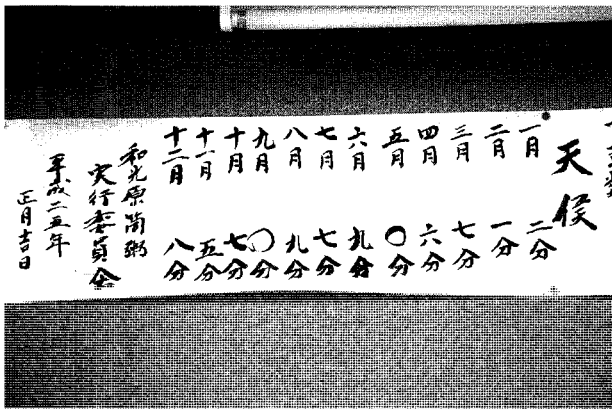 天候
一月 二分
二月 一分
三月 七分
四月 六分
五月 〇分
六月 九分
七月 七分
八月 九分
九月 〇分
十月 七分
十一月 五分
十二月 八分
和光原筒粥
実行委員会
平成二五年
正月吉日